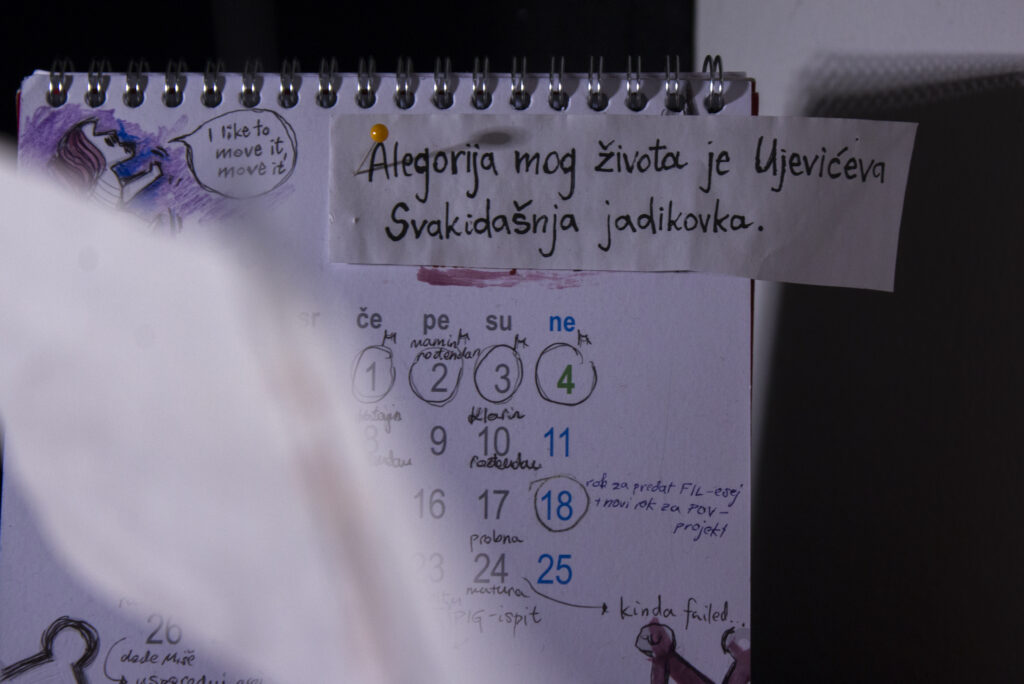 I like to
move it,
move it
Alegorija mog života je Ujevićeva
Svakidašnja jadikovka.
sr če pe su ne
mamin
rođendan
1 2 3 4
Klarin
8 9 10 11
rođendan
16 17 18
rok za predat FIL-esej
+ novi rok za POV-
projekt
probna
23 24 25
matura
PIG-ispit
kinda failed...
26
dode Miše